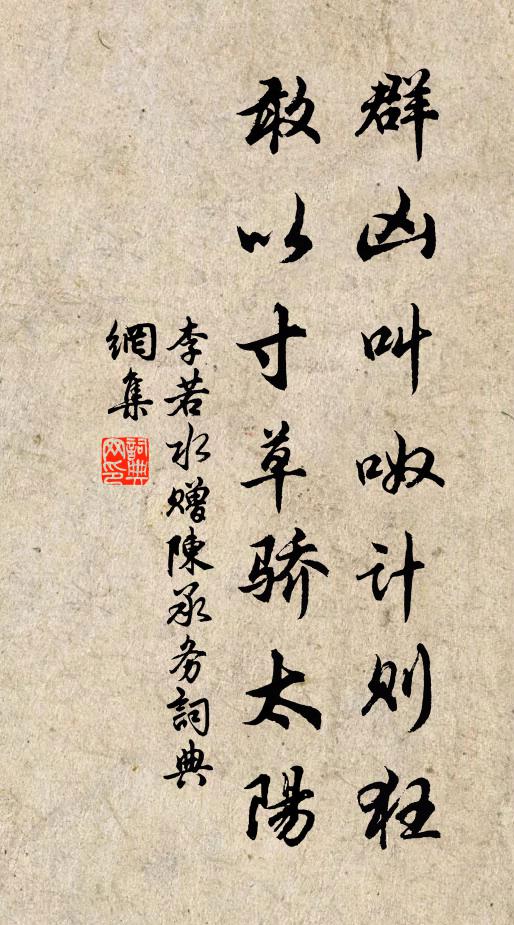 群凶叫呶计则狂
敢以寸草骄太陽
李若水赠陳承务詞典
網集
詞典网印